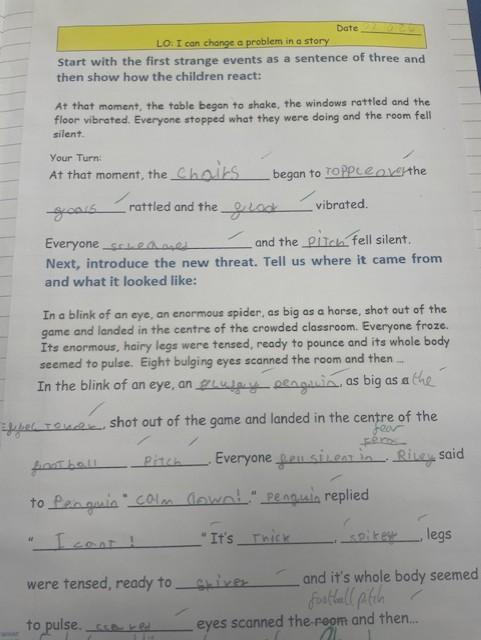 Date
LO: I can change a problem in a story
Start with the first strange events as a sentence of three and
then show how the children react:
At that moment, the table began to shake, the windows rattled and the
floor vibrated. Everyone stopped what they were doing and the room fell
silent.
Your Turn:
At that moment, the chairs began to topple over the
goals rattled and the vibrated.
Everyone screamed and the pitch fell silent.
Next, introduce the new threat. Tell us where it came from
and what it looked like:
In a blink of an eye, an enormous spider, as big as a horse, shot out of the
game and landed in the centre of the crowded classroom. Everyone froze.
Its enormous, hairy legs were tensed, ready to pounce and its whole body
seemed to pulse. Eight bulging eyes scanned the room and then ...
In the blink of an eye, an penguin, as big as a the
Tower, shot out of the game and landed in the centre of the
fear
football pitch. Everyone fell silent in. Riley said
to Penguin "calm down!." Penguin replied
"I cant!" It's thick, spikey, legs
were tensed, ready to and it's whole body seemed
football pitch
to pulse. scared eyes scanned the room and then...